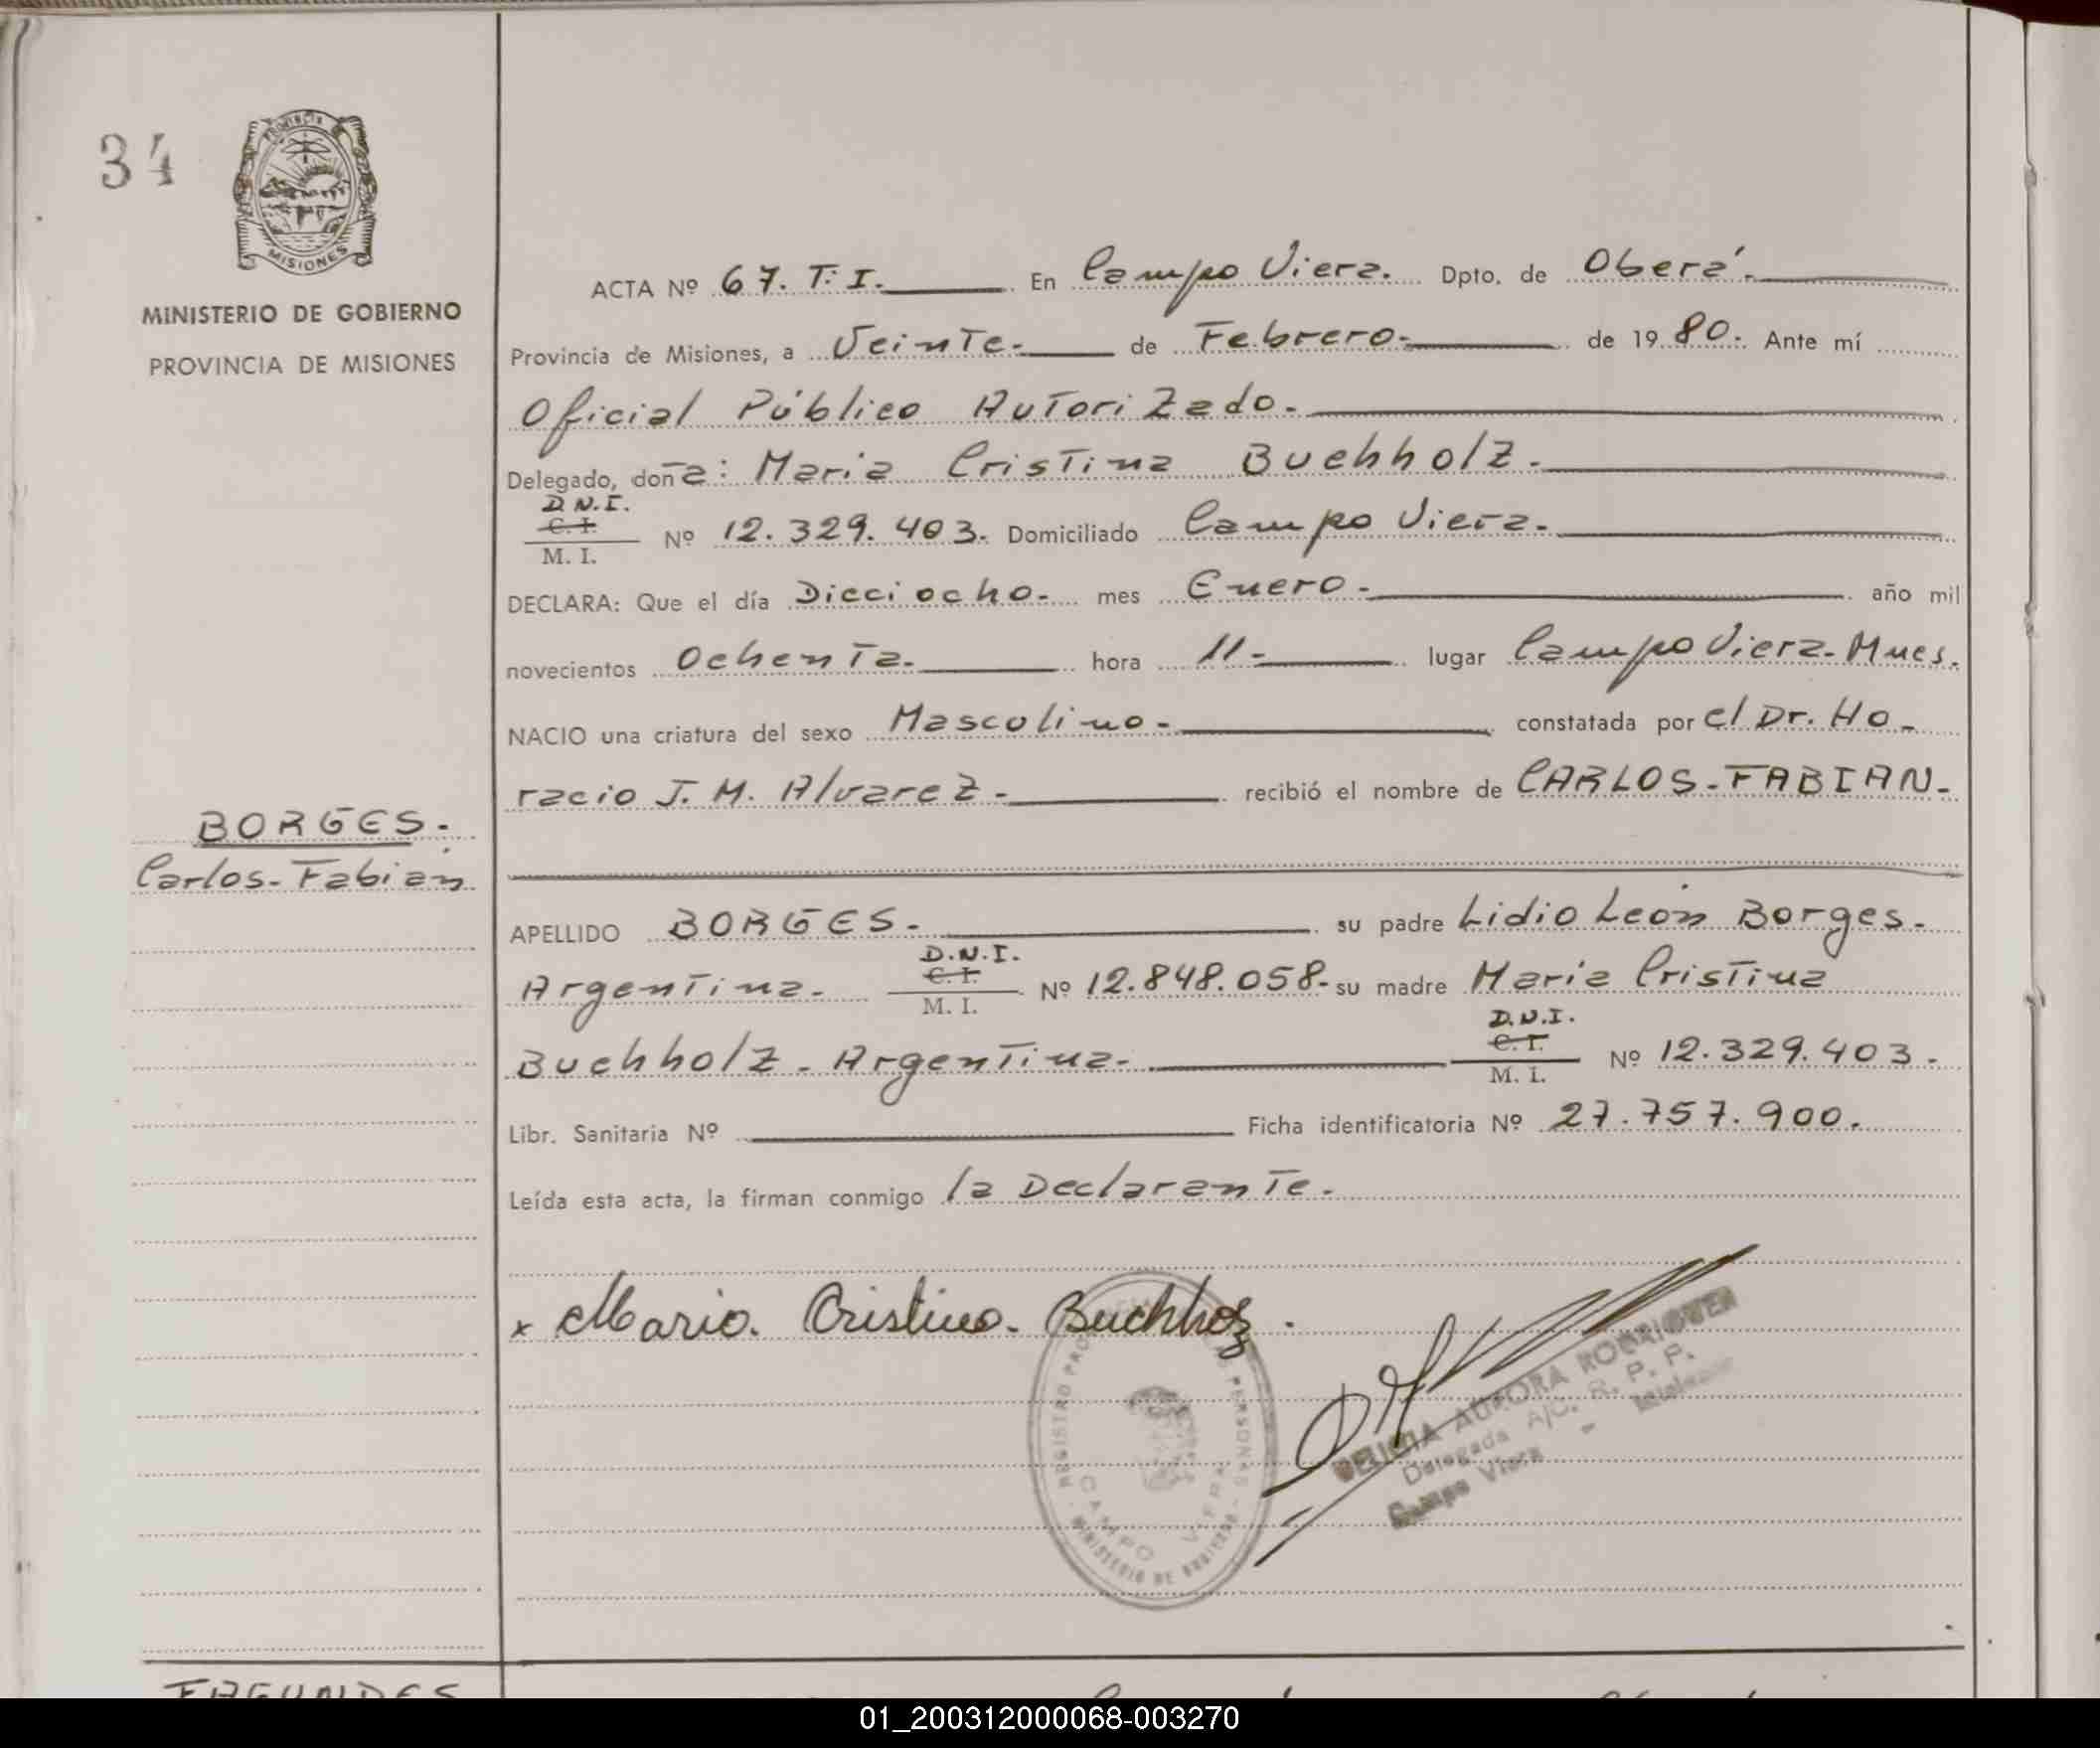 34
PROVINCIA DE
MISIONES
MINISTERIO DE GOBIERNO
PROVINCIA DE MISIONES
BORGES.
Carlos-Fabián
ACTA Nº 67. T. I. En Campo Viera. Dpto. de Oberá.
Provincia de Misiones, a Veinte. de Febrero. de 1980. Ante mí
Oficial Público Autorizado.
Delegado, doña: Maria Cristina Buchholz.
D.N.I.
C. I.
M. I.
Nº 12.329.403. Domiciliado Campo Viera.
DECLARA: Que el día Dieciocho. mes Enero. año mil
novecientos Ochenta. hora 11- lugar Campo Viera. Mnes.
NACIO una criatura del sexo Masculino. constatada por el Dr. Ho-
racio J. M. Alvarez. recibió el nombre de CARLOS-FABIAN.
APELLIDO BORGES. su padre Lidio León Borges.
D.N.I.
C. I.
M. I.
Argentina. Nº 12.848.058. su madre Maria Cristina
D.N.I.
C. I.
M. I.
Buchholz. Argentina. Nº 12.329.403.
Libr. Sanitaria Nº Ficha identificatoria Nº 27.757.900.
Leída esta acta, la firman conmigo la Declarante.
x Maria. Cristina. Buchholz.
REGISTRO PERSONAS
CAMPO VIERA
MINISTERIO DE GOBIERNO
DELICIA AURORA RODRIGUEZ
Delegada A/C. R. P. P.
Campo Viera - Misiones
FAGUNDES
01_200312000068-003270